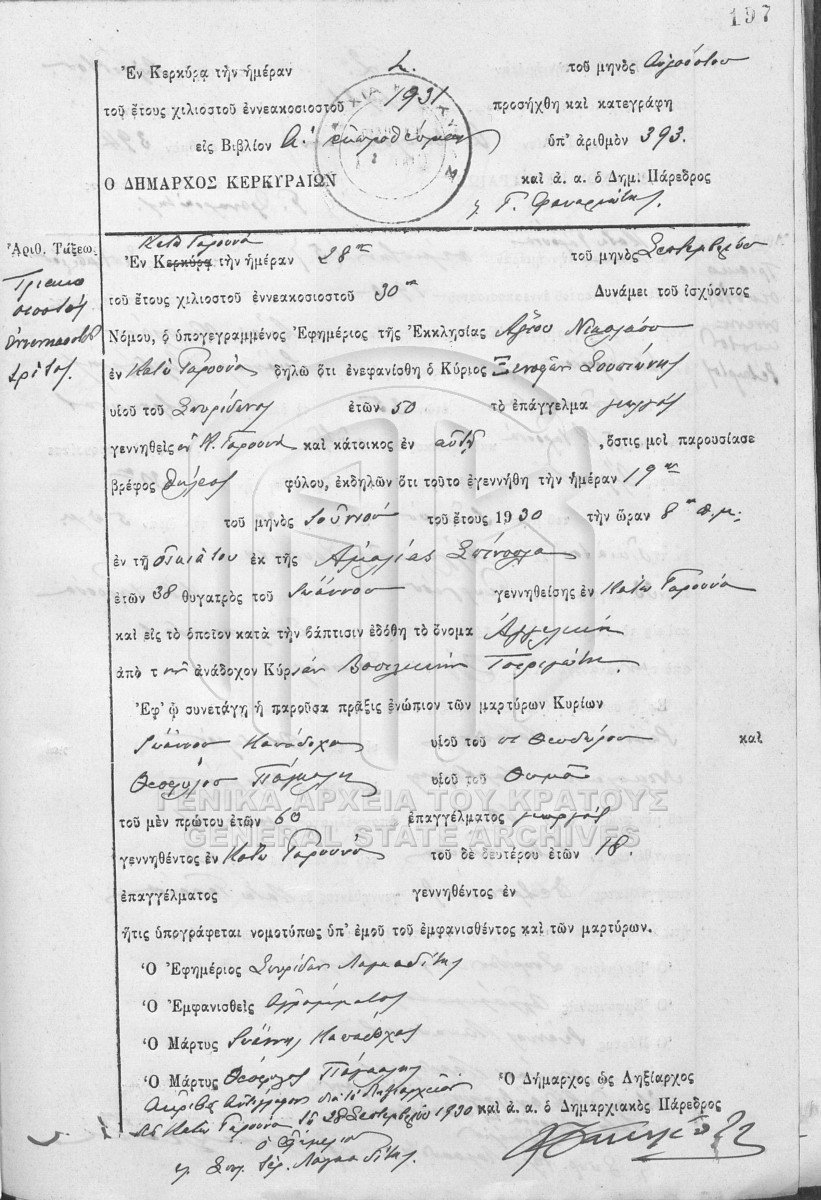 197
Ἐν Κερκύρᾳ τὴν ἡμέραν 2. τοῦ μηνὸς Αὐγούστου
τοῦ ἔτους χιλιοστοῦ ἐννεακοσιοστοῦ 1931 προσήχθη καὶ κατεγράφη
εἰς Βιβλίον Α. ἐκπροθέσμων ὑπ' ἀριθμὸν 393.
Ο ΔΗΜΑΡΧΟΣ ΚΕΡΚΥΡΑΙΩΝ καὶ ἀ. α. ὁ Δημ. Πάρεδρος
Γ. Φαναριώτης
Ἀριθ. Τάξεω.
Τριακοσιοστὸς
ἐνενηκοστὸς
τρίτος.
Κάτω Γαρούνα
Ἐν Κερκύρᾳ τὴν ἡμέραν 28ην τοῦ μηνὸς Σεπτεμβρίου
τοῦ ἔτους χιλιοστοῦ ἐννεακοσιοστοῦ 30ου Δυνάμει τοῦ ἰσχύοντος
Νόμου, ὁ ὑπογεγραμμένος Ἐφημέριος τῆς Ἐκκλησίας Ἁγίου Νικολάου
ἐν Κάτω Γαρούνα δηλῶ ὅτι ἐνεφανίσθη ὁ Κύριος Ξενοφῶν
υἱοῦ τοῦ Σπυρίδωνος ἐτῶν 50 τὸ ἐπάγγελμα γεωργὸς
γεννηθεὶς ἐν Κ. Γαρούνα καὶ κάτοικος ἐν αὐτῇ, ὅστις μοὶ παρουσίασε
βρέφος θήλεος φύλου, ἐκδηλῶν ὅτι τοῦτο ἐγεννήθη τὴν ἡμέραν 19ην
τοῦ μηνὸς Ἰουνίου τοῦ ἔτους 1930 τὴν ὥραν 8ην π.μ.
ἐν τῇ οἰκίᾳ του ἐκ τῆς Ἀμαλίας Σπίνουλα
ἐτῶν 38 θυγατρὸς τοῦ Ἰωάννου γεννηθείσης ἐν Κάτω Γαρούνα
καὶ εἰς τὸ ὁποῖον κατὰ τὴν βάπτισιν ἐδόθη τὸ ὄνομα Ἀγγελικὴ
ἀπὸ τὴν ἀνάδοχον Κύρίαν Βασιλικὴν Τσεριγώτη.
Ἐφ' ᾧ συνετάγη ἡ παροῦσα πρᾶξις ἐνώπιον τῶν μαρτύρων Κυρίων
Ἰωάννου Καπάδοχα υἱοῦ τοῦ π. Θεοδώρου καὶ
Θεοφίλου Πάγκαλη υἱοῦ τοῦ Θωμᾶ
ΓΕΝΙΚΑ ΑΡΧΕΙΑ ΤΟΥ ΚΡΑΤΟΥΣ
τοῦ μὲν πρώτου ἐτῶν 60 ἐπαγγέλματος γεωργὸς
GENERAL STATE ARCHIVES
γεννηθέντος ἐν Κάτω Γαρούνα τοῦ δὲ δευτέρου ἐτῶν 18.
ἐπαγγέλματος γεννηθέντος ἐν
ἥτις ὑπογράφεται νομοτύπως ὑπ' ἐμοῦ τοῦ ἐμφανισθέντος καὶ τῶν μαρτύρων.
Ὁ Ἐφημέριος Σπυρίδων
Ὁ Ἐμφανισθεὶς ἀγράμματος
Ὁ Μάρτυς Ἰωάννης Καπάδοχας
Ὁ Μάρτυς Θεόφιλος Πάγκαλης Ὁ Δήμαρχος ὡς Ληξίαρχος
Ἀκριβὲς ἀντίγραφον διὰ τὸ Ληξιαρχεῖον
Ἐν Κάτω Γαρούνα τῇ 28 Σεπτεμβρίου 1930 καὶ ἀ. α. ὁ Δημαρχιακὸς Πάρεδρος
ὁ Ἐφημέριος